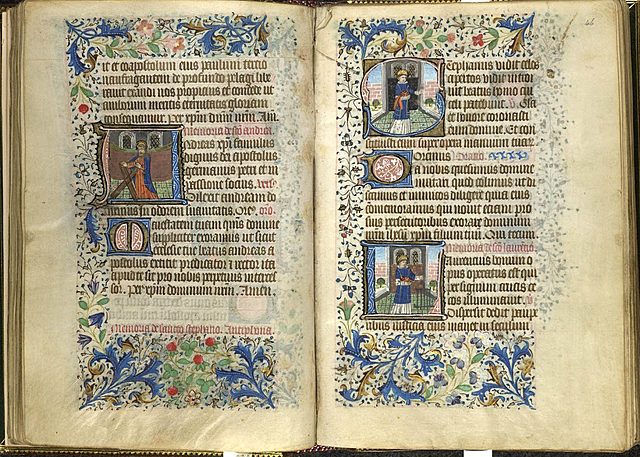 it et coapostolum eius paulum tercio
naufragantem de profundo pelagi libe
ravit exaudi nos propicius et concede ut
amborum meritis eternitatis gloriam
consequamur. per xpm dominum nrm. Am.
Memoria de sco andrea.
Andreas xpi famulus
dignus dei apostolus
germanus petri et in
passione socius. vers.
Dilexit andream do
minus in odorem suavitatis. oro
Maiestatem tuam domine
suppliciter exoramus ut sicut
ecclesie tue beatus andreas a
postolus extitit predicator et rector ita
apud te sit pro nobis perpetuus interces
sor. per xpm dominum nrm. Amen.
Memoria de sancto stephano. Antiphona
46
Stephanus vidit celos
apertos vidit et introi
vit beatus homo cui
celi patebant. V. Glia
et honore coronasti
eum domine. Et con
stituisti eum super opera manuum tuar
Oremus Oratio.
Da nobis quesumus domine
imitari quod colimus ut di
scamus et inimicos diligere quia eius
commemoramus qui novit eciam pro
suis persecutoribus exorare dominum
nrm ihesu xpm filium tuum. Qui tecum
Memoria de sco laurencio.
Laurencius bonum o
pus operatus est qui
per signum crucis ce
cos illuminavit. vs
Dispersit dedit paupe
ribus iusticia eius manet in seculum